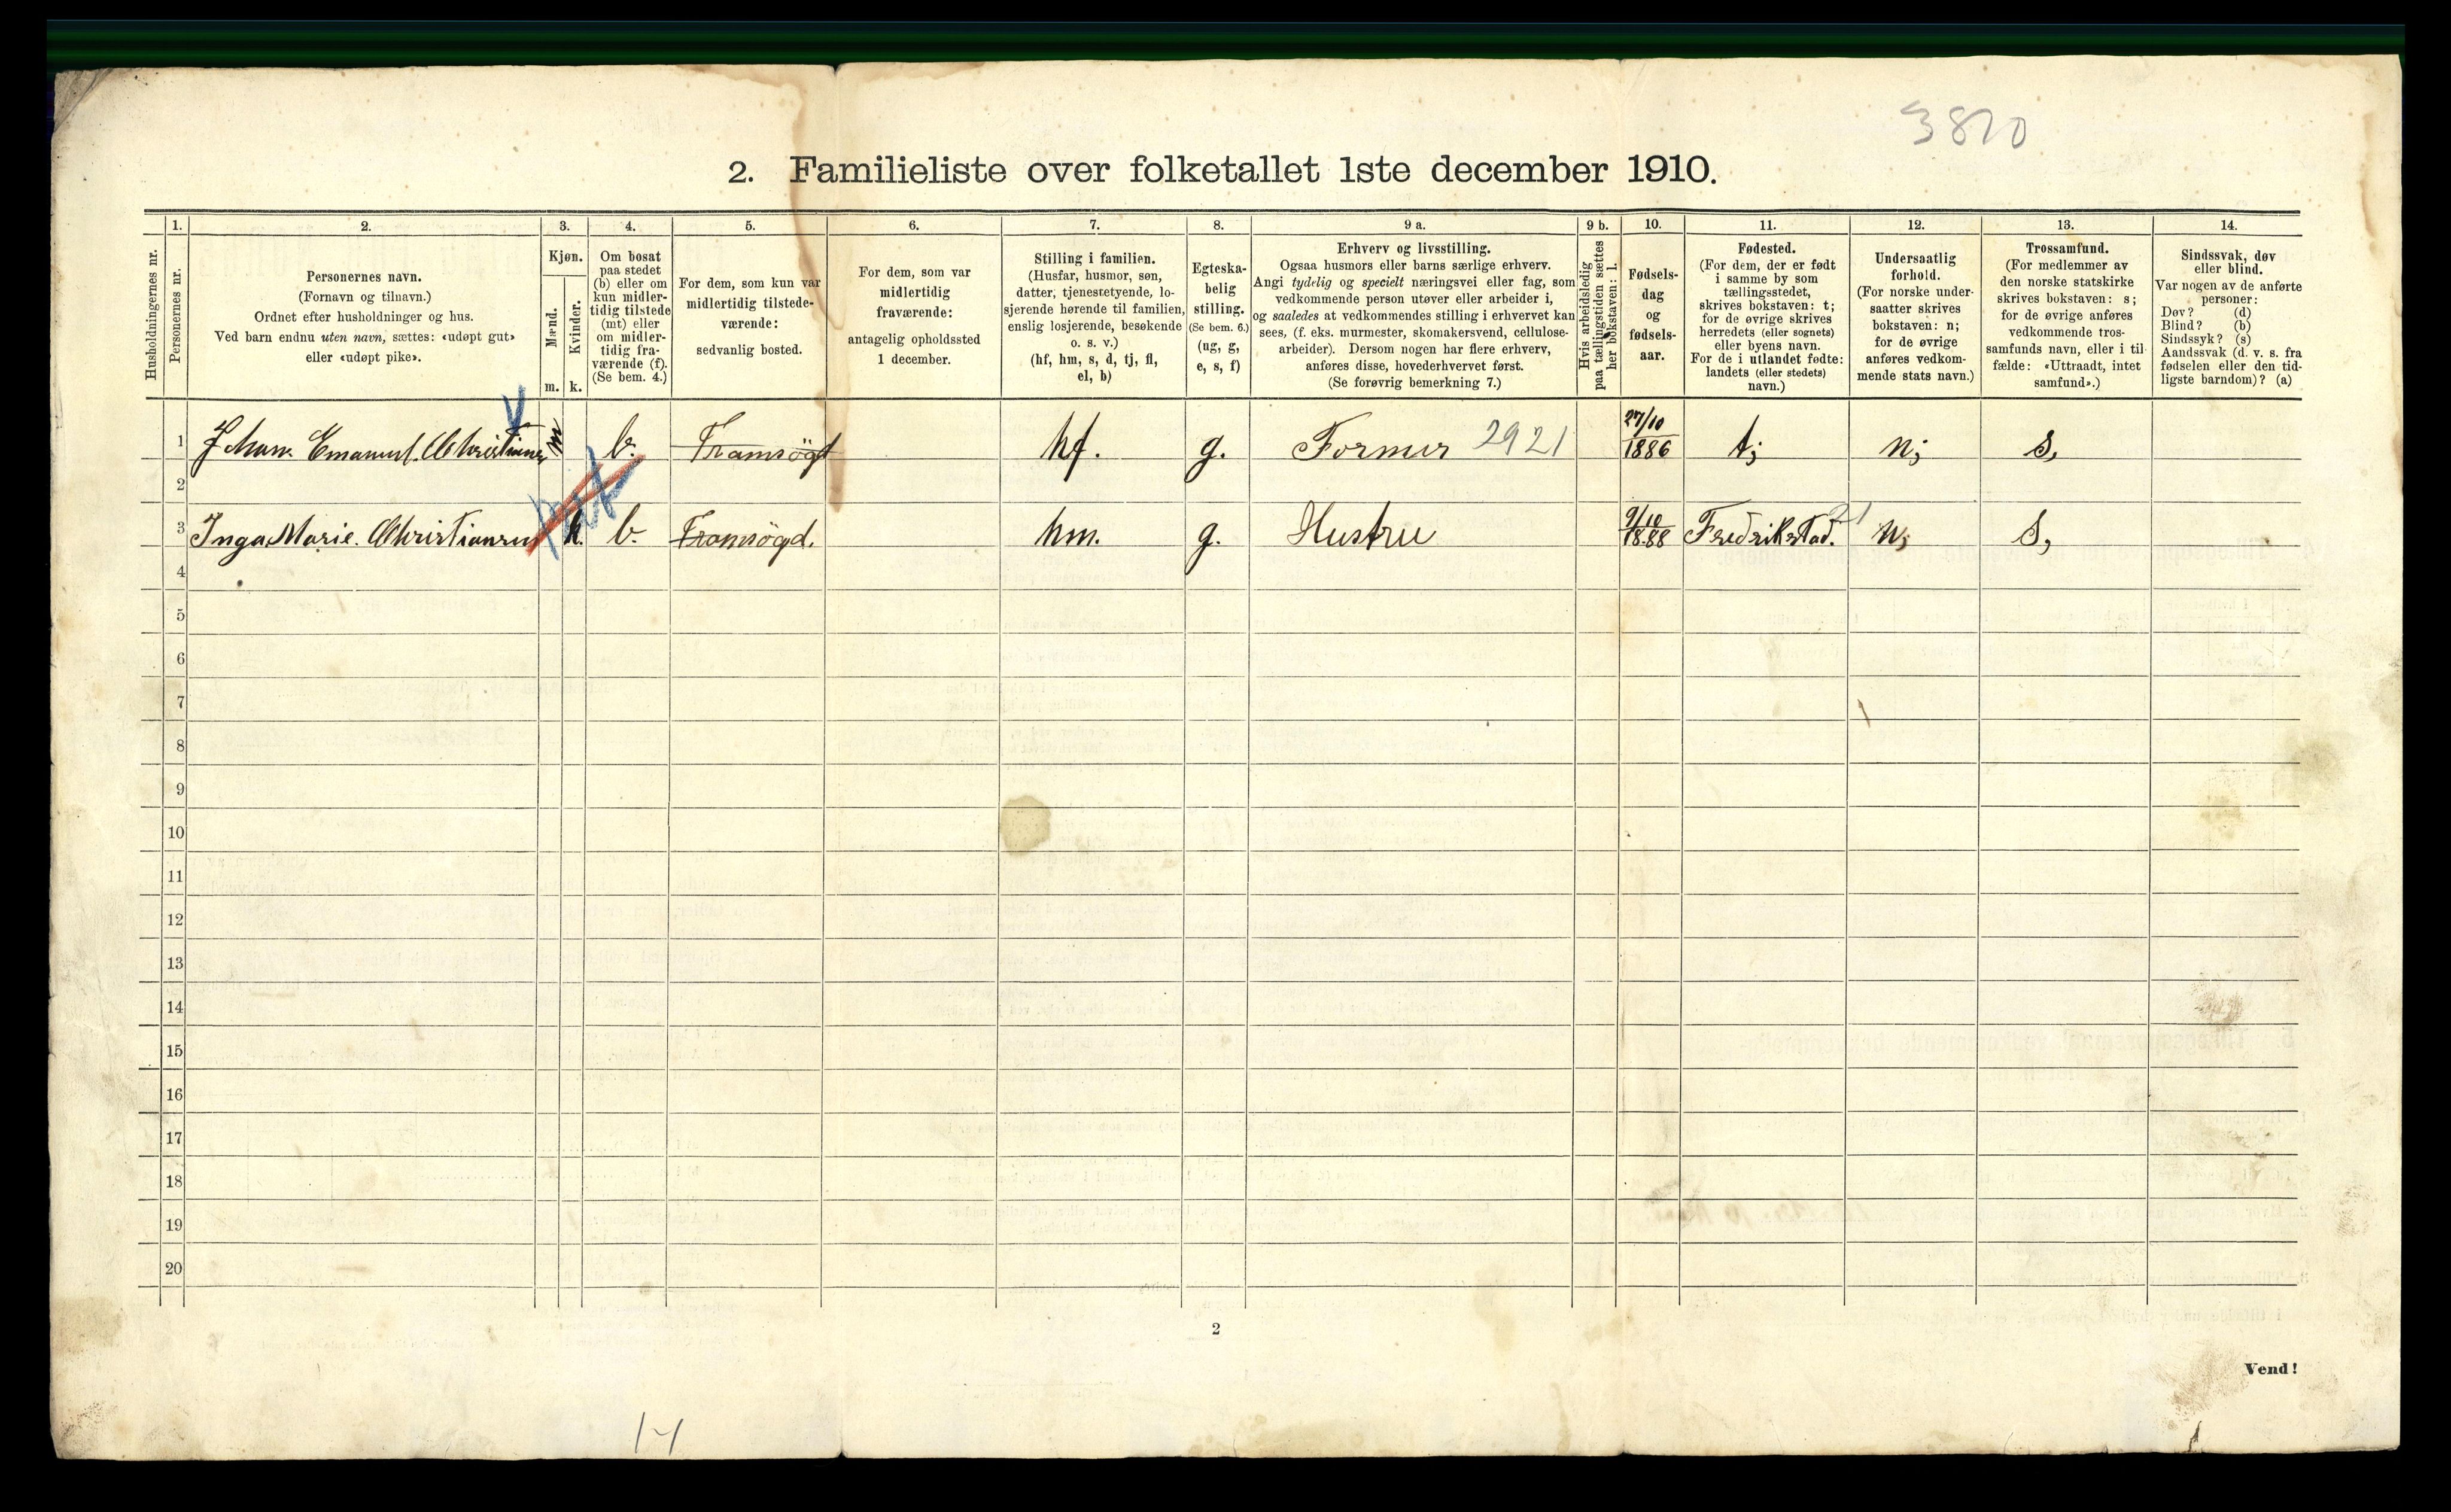 3810
2. Familieliste over folketallet 1ste december 1910.
1. 2. 3. 4. 5. 6. 7. 8. 9 a. 9 b. 10. 11. 12. 13. 14.
Husholdningernes nr.
Personernes nr.
Personernes navn.
(Fornavn og tilnavn.)
Ordnet efter husholdninger og hus.
Ved barn endnu uten navn, sættes: «udøpt gut»
eller «udøpt pike».
Kjøn.
Mænd.
Kvinder.
m. k.
Om bosat
paa stedet
(b) eller om
kun midler-
tidig tilstede
(mt) eller
om midler-
tidig fra-
værende (f).
(Se bem. 4.)
For dem, som kun var
midlertidig tilstede-
værende:
sedvanlig bosted.
For dem, som var
midlertidig
fraværende:
antagelig opholdssted
1 december.
Stilling i familien.
(Husfar, husmor, søn,
datter, tjenestetyende, lo-
sjerende hørende til familien,
enslig losjerende, besøkende
o. s. v.)
(hf, hm, s, d, tj, fl,
el, b)
Egteska-
belig
stilling.
(Se bem. 6.)
(ug, g,
e, s, f)
Erhverv og livsstilling.
Ogsaa husmors eller barns særlige erhverv.
Angi tydelig og specielt næringsvei eller fag, som
vedkommende person utøver eller arbeider i,
og saaledes at vedkommendes stilling i erhvervet kan
sees, (f. eks. murmester, skomakersvend, cellulose-
arbeider). Dersom nogen har flere erhverv,
anføres disse, hovederhvervet først.
(Se forøvrig bemerkning 7.)
Hvis arbeidsledig
paa tællingstiden sættes
her bokstaven: l.
Fødsels-
dag
og
fødsels-
aar.
Fødested.
(For dem, der er født
i samme by som
tællingsstedet,
skrives bokstaven: t;
for de øvrige skrives
herredets (eller sognets)
eller byens navn.
For de i utlandet fødte:
landets (eller stedets)
navn.)
Undersaatlig
forhold.
(For norske under-
saatter skrives
bokstaven: n;
for de øvrige
anføres vedkom-
mende stats navn.)
Trossamfund.
(For medlemmer av
den norske statskirke
skrives bokstaven: s;
for de øvrige anføres
vedkommende tros-
samfunds navn, eller i til-
fælde: «Uttraadt, intet
samfund».)
Sindssvak, døv
eller blind.
Var nogen av de anførte
personer:
Døv? (d)
Blind? (b)
Sindssyk? (s)
Aandssvak (d. v. s. fra
fødselen eller den tid-
ligste barndom)? (a)
1 Johan Emanuel Christiansen m b. Tramsögd hf. g. Former 2921 27/10 1886 t; n; s,
2
3 Inga Marie. Christiansen k. b. Tramsögd. hm. g. Hustru 9/10 1888 Fredrikstad. n; s,
4
5
6
7
8
9
10
11
12
13
14
15
16
17
18
19
20
2
Vend!
14